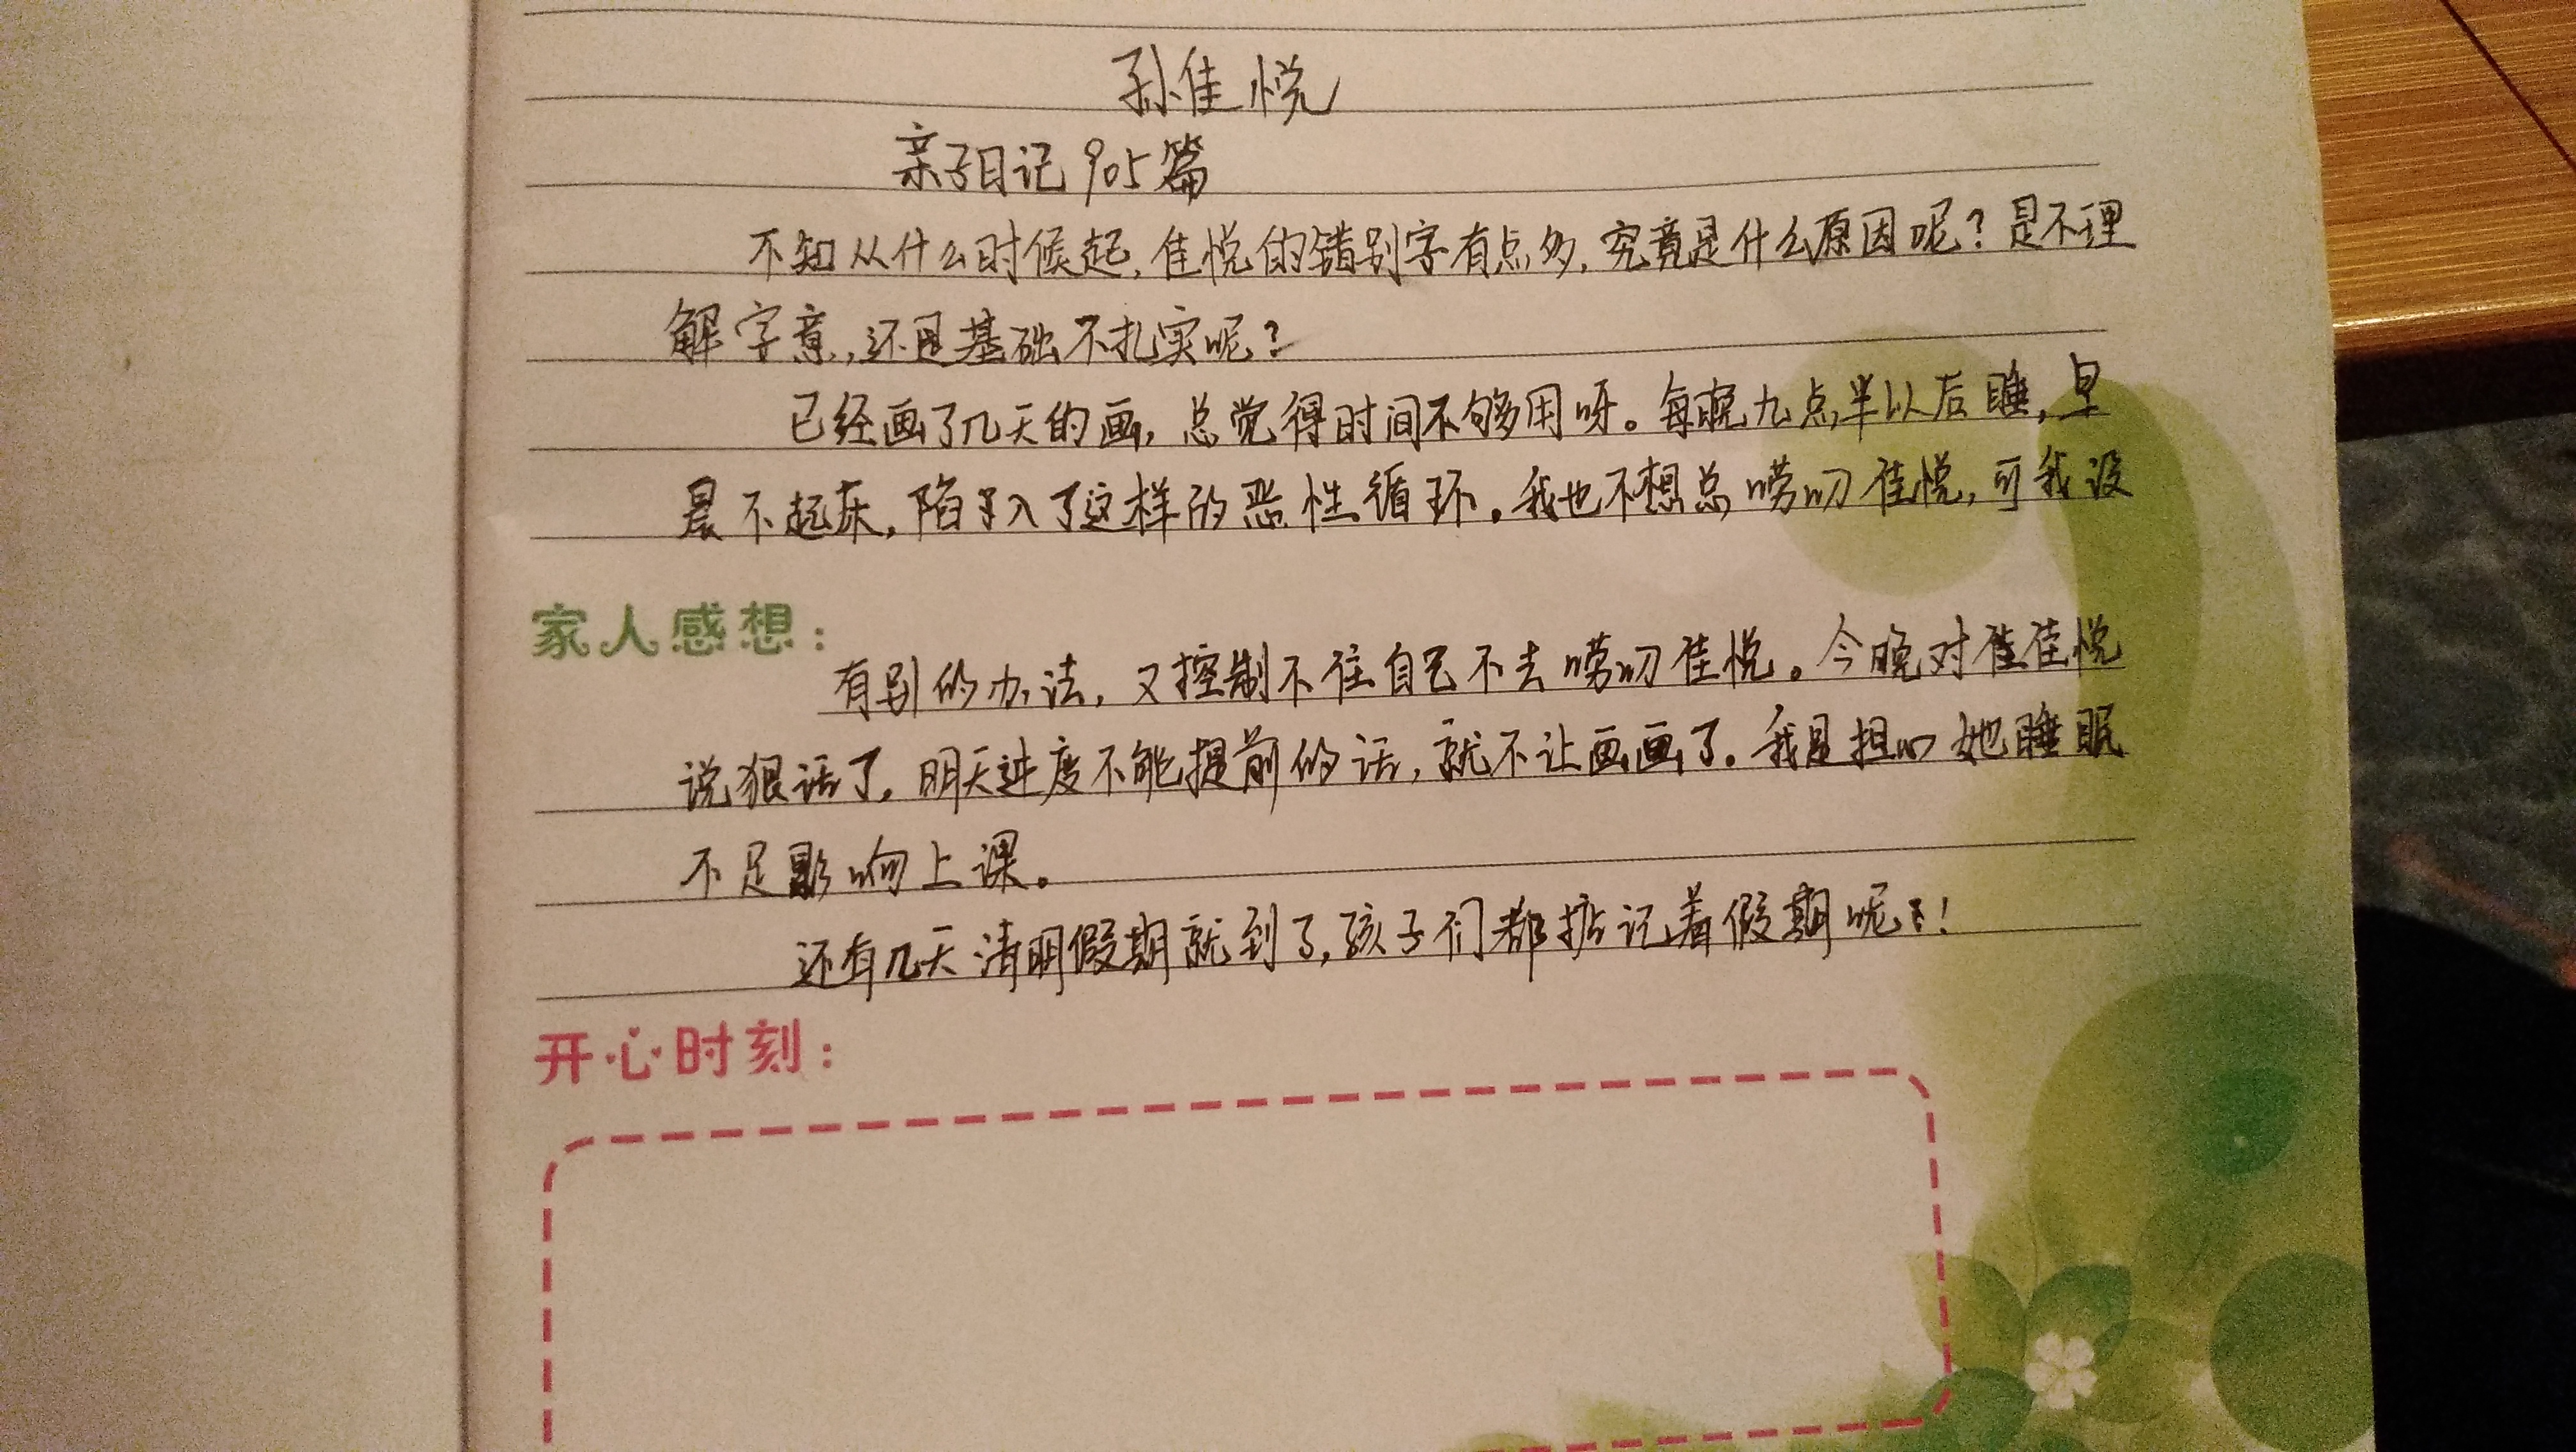 孙佳悦
亲子日记905篇
不知从什么时候起，佳悦的错别字有点多，究竟是什么原因呢？是不理
解字意，还是基础不扎实呢？
已经画了几天的画，总觉得时间不够用呀。每晚九点半以后睡，早
晨不起床，陷入了这样的恶性循环。我也不想总唠叨佳悦，可我没
家人感想：
有别的办法，又控制不住自己不去唠叨佳悦。今晚对佳佳悦
说狠话了，明天进度不能提前的话，就不让画画了。我是担心她睡眠
不足影响上课。
还有几天清明假期就到了，孩子们都掂记着假期呢！
开心时刻：